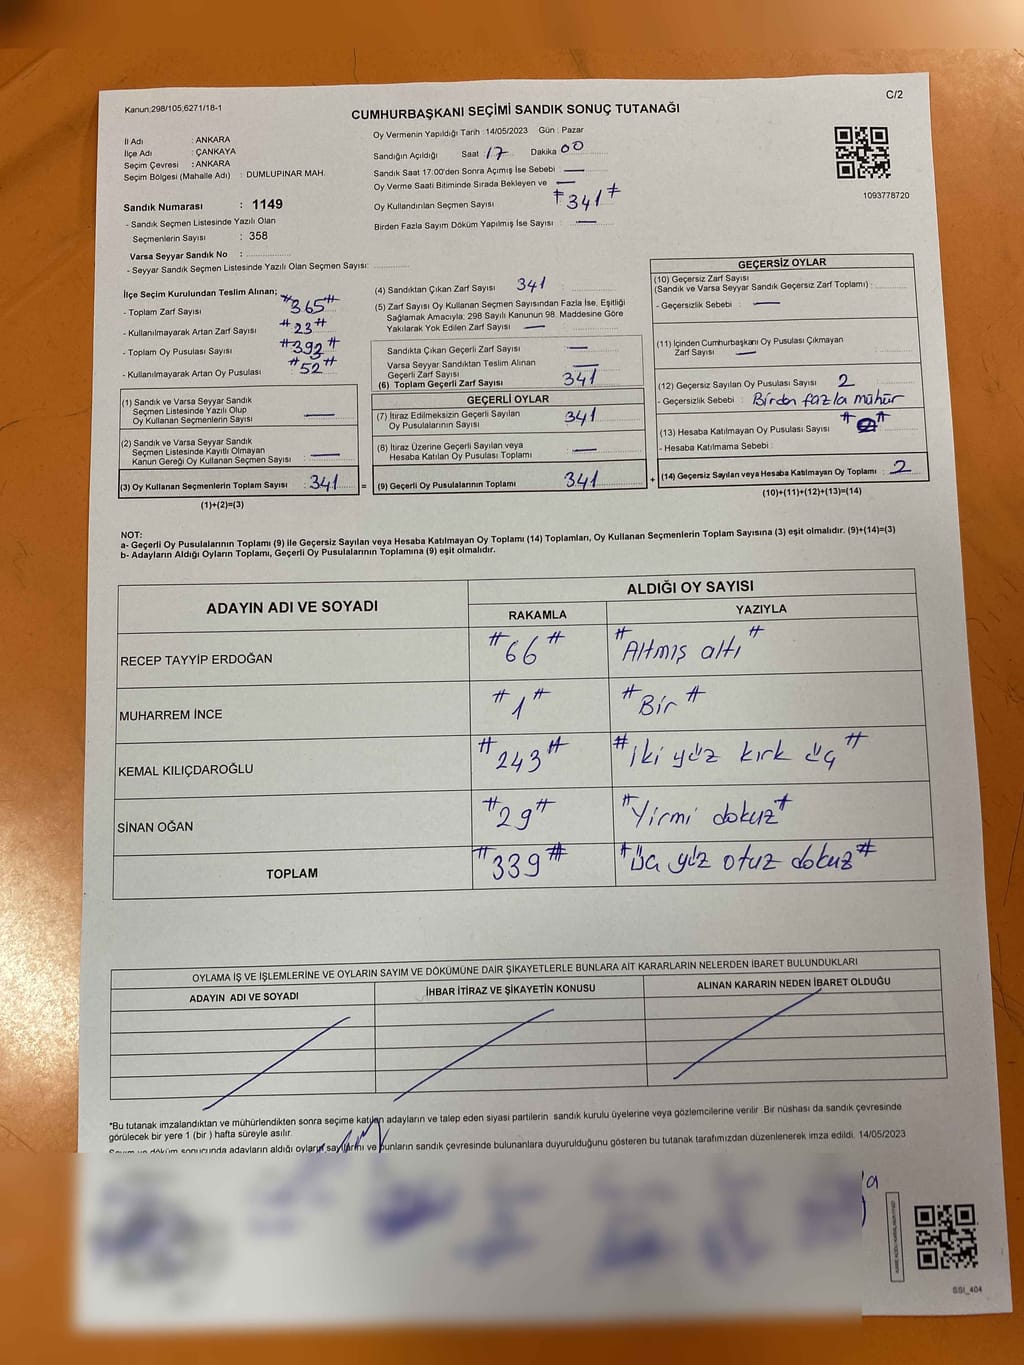 Kanun:298/105,6271/18-1
C/2
CUMHURBAŞKANI SEÇİMİ SANDIK SONUÇ TUTANAĞI
İl Adı : ANKARA
İlçe Adı : ÇANKAYA
Seçim Çevresi : ANKARA
Seçim Bölgesi (Mahalle Adı) : DUMLUPINAR MAH.
Sandık Numarası : 1149
- Sandık Seçmen Listesinde Yazılı Olan
Seçmenlerin Sayısı : 358
Varsa Seyyar Sandık No :
- Seyyar Sandık Seçmen Listesinde Yazılı Olan Seçmen Sayısı:
Oy Vermenin Yapıldığı Tarih : 14/05/2023 Gün : Pazar
Sandığın Açıldığı Saat 17 Dakika 00
Sandık Saat 17:00'den Sonra Açımış İse Sebebi : —
Oy Verme Saati Bitiminde Sırada Bekleyen ve —
Oy Kullandırılan Seçmen Sayısı #341#
Birden Fazla Sayım Döküm Yapılmış İse Sayısı : —
1093778720
İlçe Seçim Kurulundan Teslim Alınan;
- Toplam Zarf Sayısı : #365#
- Kullanılmayarak Artan Zarf Sayısı : #23#
- Toplam Oy Pusulası Sayısı : #392#
- Kullanılmayarak Artan Oy Pusulası : #52#
(1) Sandık ve Varsa Seyyar Sandık
Seçmen Listesinde Yazılı Olup
Oy Kullanan Seçmenlerin Sayısı : —
(2) Sandık ve Varsa Seyyar Sandık
Seçmen Listesinde Kayıtlı Olmayan
Kanun Gereği Oy Kullanan Seçmen Sayısı : —
(3) Oy Kullanan Seçmenlerin Toplam Sayısı : 341 =
(1)+(2)=(3)
(4) Sandıktan Çıkan Zarf Sayısı : 341
(5) Zarf Sayısı Oy Kullanan Seçmen Sayısından Fazla İse, Eşitliği
Sağlamak Amacıyla; 298 Sayılı Kanunun 98. Maddesine Göre
Yakılarak Yok Edilen Zarf Sayısı : —
Sandıkta Çıkan Geçerli Zarf Sayısı : —
Varsa Seyyar Sandıktan Teslim Alınan
Geçerli Zarf Sayısı : —
(6) Toplam Geçerli Zarf Sayısı : 341
GEÇERLİ OYLAR
(7) İtiraz Edilmeksizin Geçerli Sayılan
Oy Pusulalarının Sayısı : 341
(8) İtiraz Üzerine Geçerli Sayılan veya
Hesaba Katılan Oy Pusulası Toplamı : —
(9) Geçerli Oy Pusulalarının Toplamı : 341 +
GEÇERSİZ OYLAR
(10) Geçersiz Zarf Sayısı
(Sandık ve Varsa Seyyar Sandık Geçersiz Zarf Toplamı) :
- Geçersizlik Sebebi : —
(11) İçinden Cumhurbaşkanı Oy Pusulası Çıkmayan
Zarf Sayısı : —
(12) Geçersiz Sayılan Oy Pusulası Sayısı : 2
- Geçersizlik Sebebi : Birden fazla mühür
(13) Hesaba Katılmayan Oy Pusulası Sayısı :
- Hesaba Katılmama Sebebi :
(14) Geçersiz Sayılan veya Hesaba Katılmayan Oy Toplamı : 2
(10)+(11)+(12)+(13)=(14)
NOT:
a- Geçerli Oy Pusulalarının Toplamı (9) ile Geçersiz Sayılan veya Hesaba Katılmayan Oy Toplamı (14) Toplamları, Oy Kullanan Seçmenlerin Toplam Sayısına (3) eşit olmalıdır. (9)+(14)=(3)
b- Adayların Aldığı Oyların Toplamı, Geçerli Oy Pusulalarının Toplamına (9) eşit olmalıdır.
ADAYIN ADI VE SOYADI
ALDIĞI OY SAYISI
RAKAMLA YAZIYLA
RECEP TAYYİP ERDOĞAN #66# #Altmış altı#
MUHARREM İNCE #1# #Bir#
KEMAL KILIÇDAROĞLU #243# #iki yüz kırk üç#
SİNAN OĞAN #29# #Yirmi dokuz#
TOPLAM #339# #üç yüz otuz dokuz#
OYLAMA İŞ VE İŞLEMLERİNE VE OYLARIN SAYIM VE DÖKÜMÜNE DAİR ŞİKAYETLERLE BUNLARA AİT KARARLARIN NELERDEN İBARET BULUNDUKLARI
ADAYIN ADI VE SOYADI İHBAR İTİRAZ VE ŞİKAYETİN KONUSU ALINAN KARARIN NEDEN İBARET OLDUĞU
*Bu tutanak imzalandıktan ve mühürlendikten sonra seçime katılan adayların ve talep eden siyasi partilerin sandık kurulu üyelerine veya gözlemcilerine verilir. Bir nüshası da sandık çevresinde
görülecek bir yere 1 (bir ) hafta süreyle asılır.
Sayım ve döküm sonucunda adayların aldığı oyların sayılarını ve bunların sandık çevresinde bulunanlara duyurulduğunu gösteren bu tutanak tarafımızdan düzenlenerek imza edildi. 14/05/2023
SSI_404